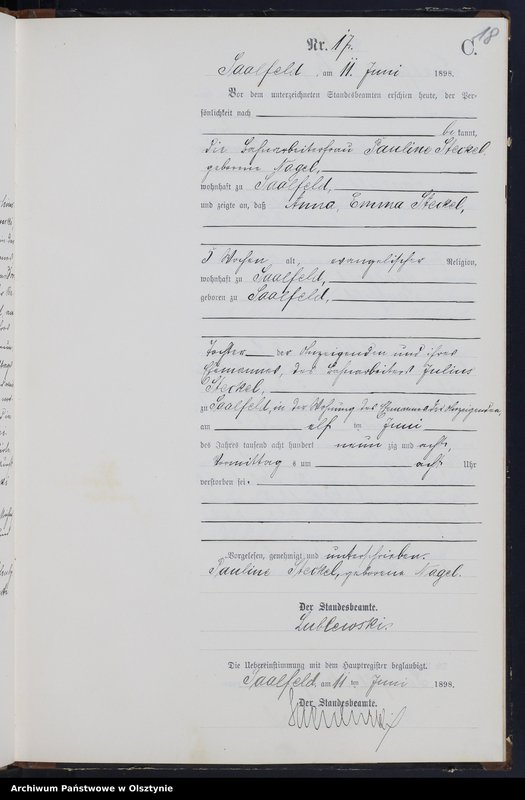 18
Nr. 17.
C.
Saalfeld, am 11. Juni 1898.
Vor dem unterzeichneten Standesbeamten erschien heute, der Per-
sönlichkeit nach
be kannt,
die Bahnarbeiterfrau Pauline Steckel,
geborene Nagel,
wohnhaft zu Saalfeld,
und zeigte an, daß Anna, Emma Steckel,
5 Wochen alt, evangelischer Religion,
wohnhaft zu Saalfeld,
geboren zu Saalfeld,
Tochter der Anzeigenden und ihres
Ehemannes, des Bahnarbeiters Julius
Steckel,
zu Saalfeld, in der Wohnung des Ehemannes der Anzeigenden,
am elf ten Juni
des Jahres tausend acht hundert neun zig und acht,
Vormittag s um acht Uhr
verstorben sei.
Vorgelesen, genehmigt und unterschrieben.
Pauline Steckel, geborene Nagel.
Der Standesbeamte.
Lublewski.
Die Uebereinstimmung mit dem Hauptregister beglaubigt.
Saalfeld, am 11 ten Juni 1898.
Der Standesbeamte.
Archiwum Państwowe w Olsztynie